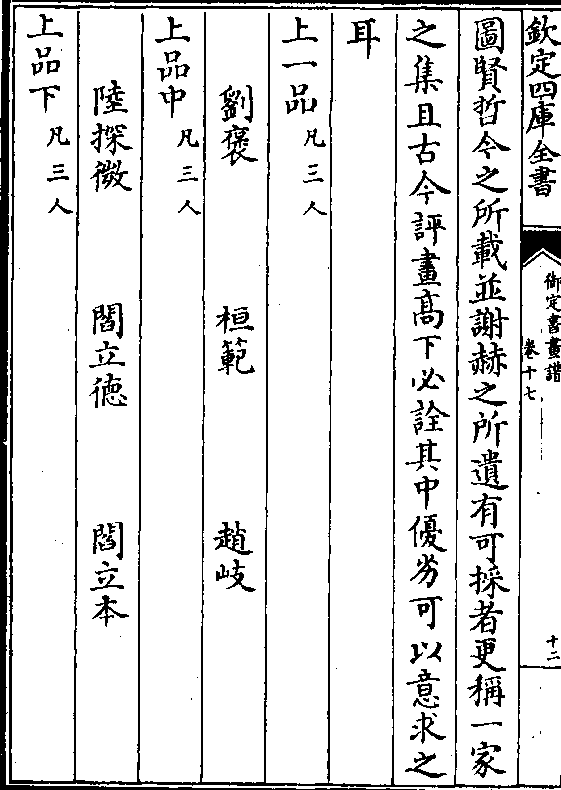 欽定四庫全書
御定書畫譜
卷十七
十二
圖賢哲今之所載並謝赫之所遺有可採者更稱一家
之集且古今評畫髙下必詮其中優劣可以意求之
耳
上一品凡三人
劉褒 桓範 趙岐
上品中凡三人
陸探微 閻立德 閻立本
上品下凡三人